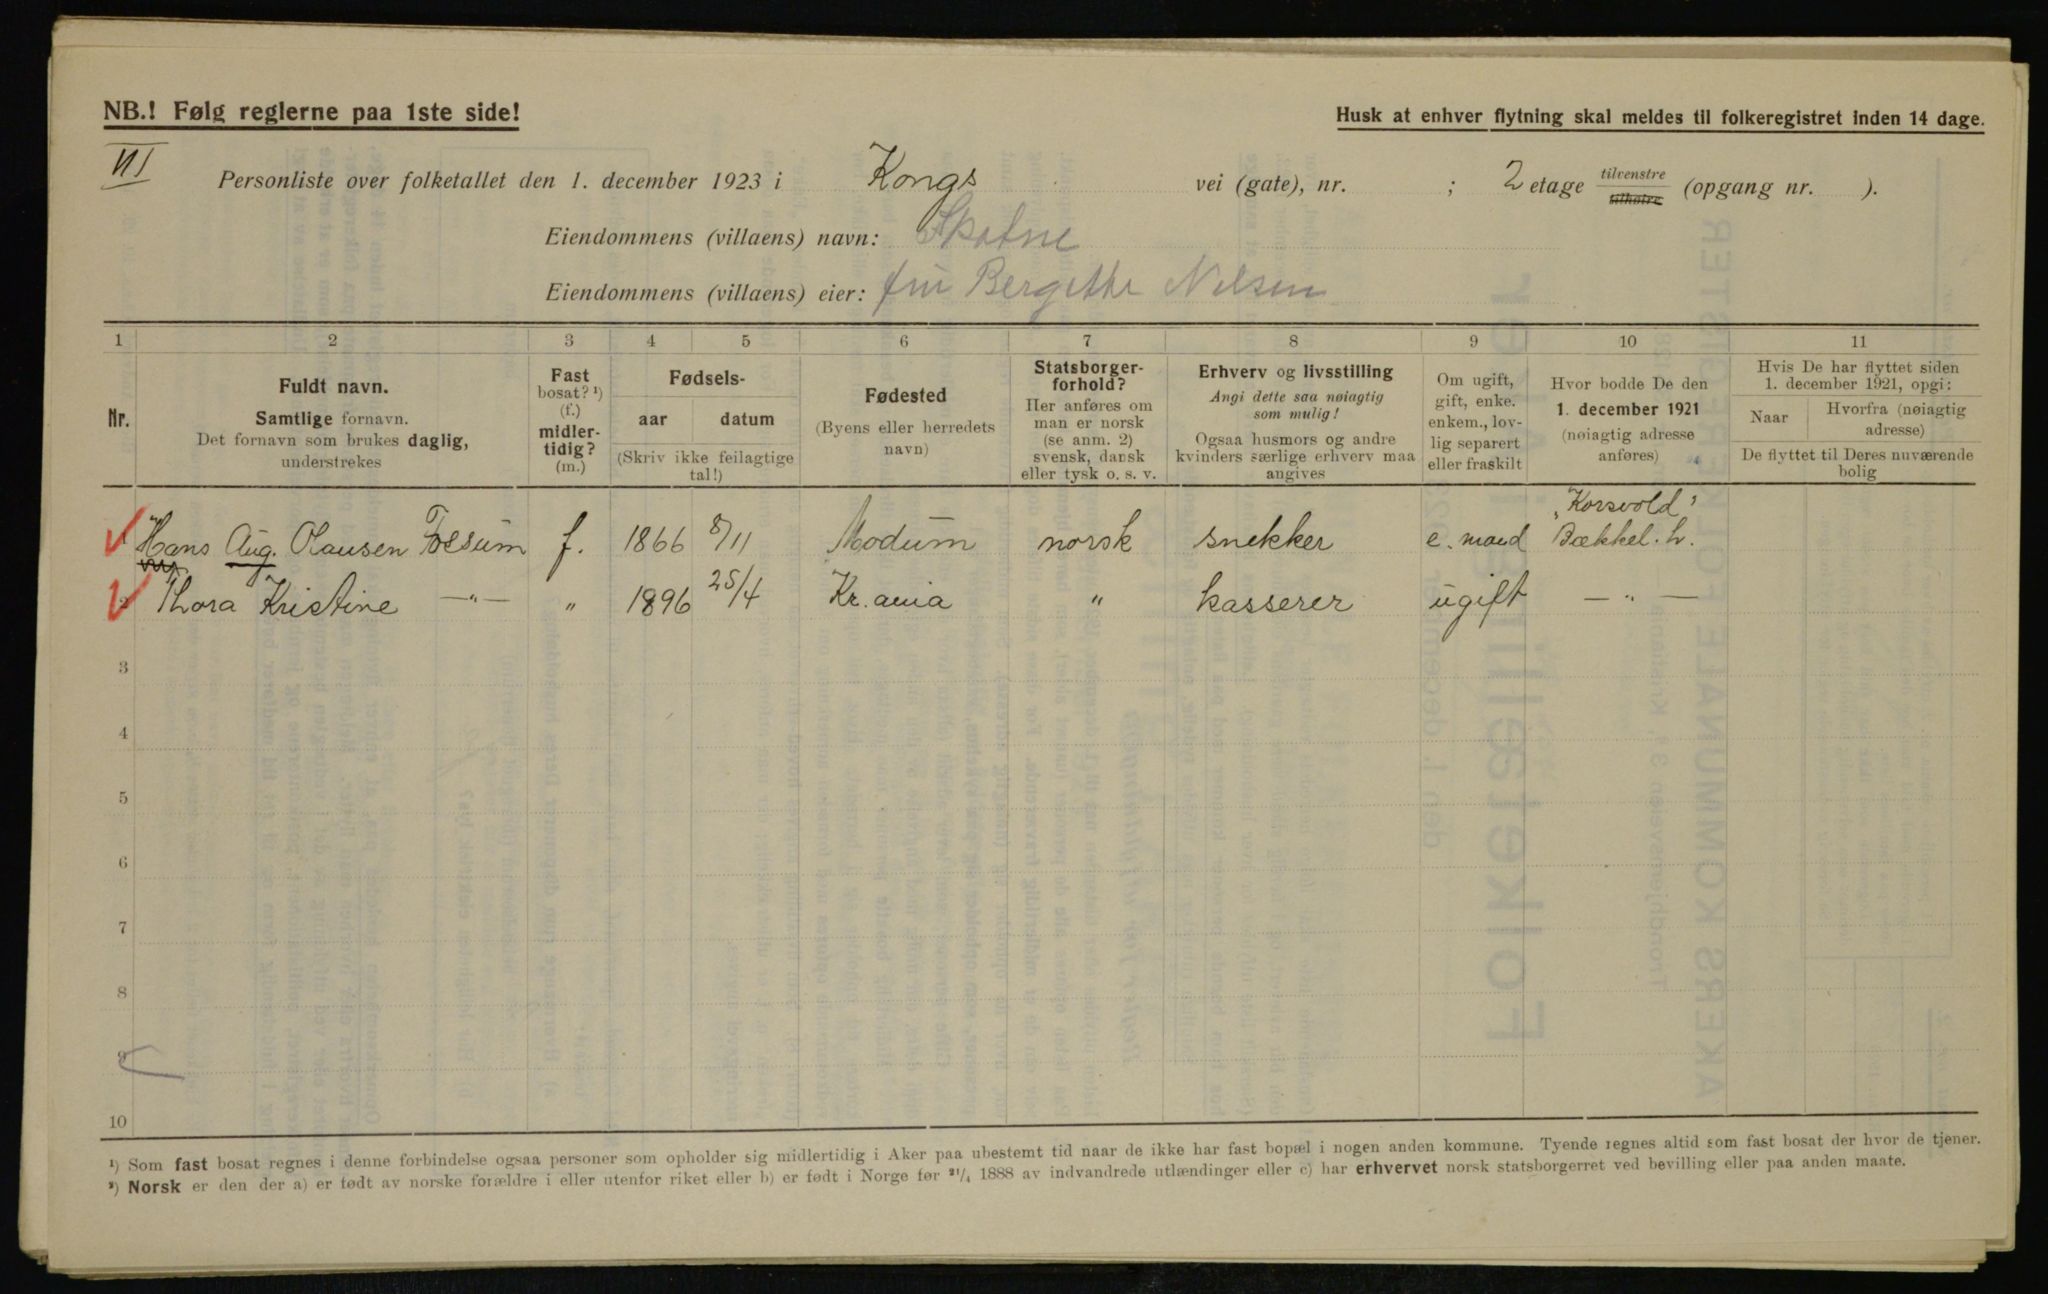 NB.! Følg reglerne paa 1ste side!
Husk at enhver flytning skal meldes til folkeregistret inden 14 dage.
VI
Personliste over folketallet den 1. december 1923 i Kongs vei (gate), nr. ; 2 etage tilvenstre tilhøire (opgang nr. ).
Eiendommens (villaens) navn: Skatne
Eiendommens (villaens) eier: fru Bergithe Nilsen
1 2 3 4 5 6 7 8 9 10 11
Nr.
Fuldt navn.
Samtlige fornavn.
Det fornavn som brukes daglig,
understrekes
Fast
bosat? ¹)
(f.)
midler-
tidig?
(m.)
Fødsels-
aar datum
(Skriv ikke feilagtige
tal!)
Fødested
(Byens eller herredets
navn)
Statsborger-
forhold?
Her anføres om
man er norsk
(se anm. 2)
svensk, dansk
eller tysk o. s. v.
Erhverv og livsstilling
Angi dette saa nøiagtig
som mulig!
Ogsaa husmors og andre
kvinders særlige erhverv maa
angives
Om ugift,
gift, enke.
enkem., lov-
lig separert
eller fraskilt
Hvor bodde De den
1. december 1921
(nøiagtig adresse
anføres)
Hvis De har flyttet siden
1. december 1921, opgi:
Naar
Hvorfra (nøiagtig
adresse)
De flyttet til Deres nuværende
bolig
"Korsvold"
1 Hans Aug. Olausen Fossum f. 1866 8/11 Modum norsk snekker e. mand Bækkel. h.
2 Thora Kristine —"— " 1896 25/4 Kr.ania " kasserer ugift — " —
3
4
5
6
7
8
9
10
¹) Som fast bosat regnes i denne forbindelse ogsaa personer som opholder sig midlertidig i Aker paa ubestemt tid naar de ikke har fast bopæl i nogen anden kommune. Tyende regnes altid som fast bosat der hvor de tjener.
²) Norsk er den der a) er født av norske forældre i eller utenfor riket eller b) er født i Norge før ²¹/₄ 1888 av indvandrede utlændinger eller c) har erhvervet norsk statsborgerret ved bevilling eller paa anden maate.